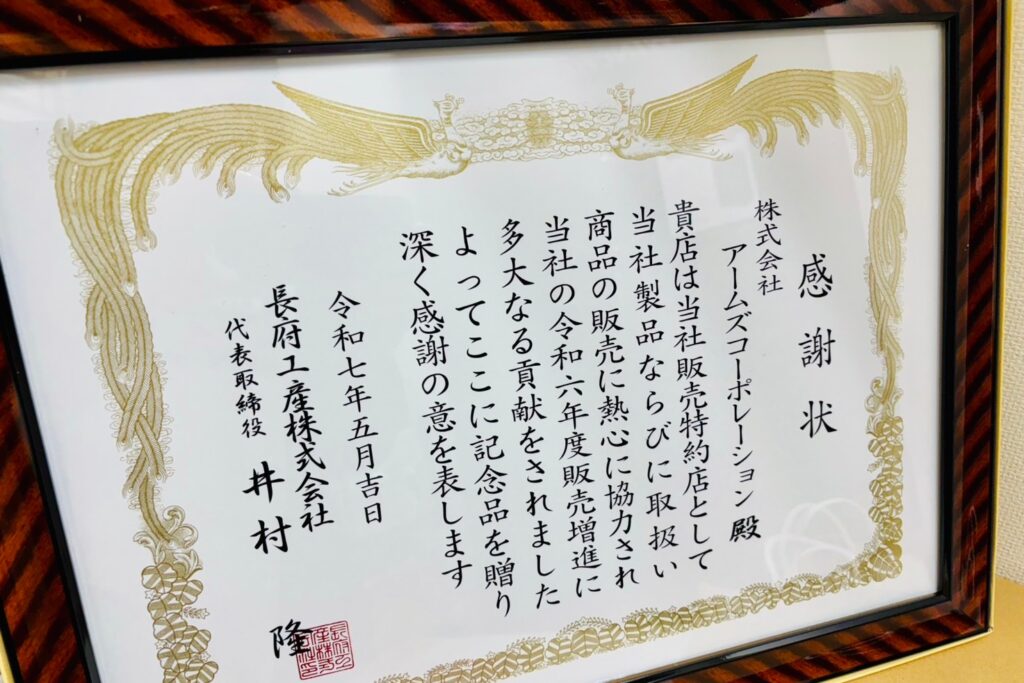 感謝状
株式会社
アームズコーポレーション 殿
貴店は当社販売特約店として
当社製品ならびに取扱い
商品の販売に熱心に協力され
当社の令和六年度販売増進に
多大なる貢献をされました
よってここに記念品を贈り
深く感謝の意を表します
令和七年五月吉日
長府工産株式会社
代表取締役 井村 隆